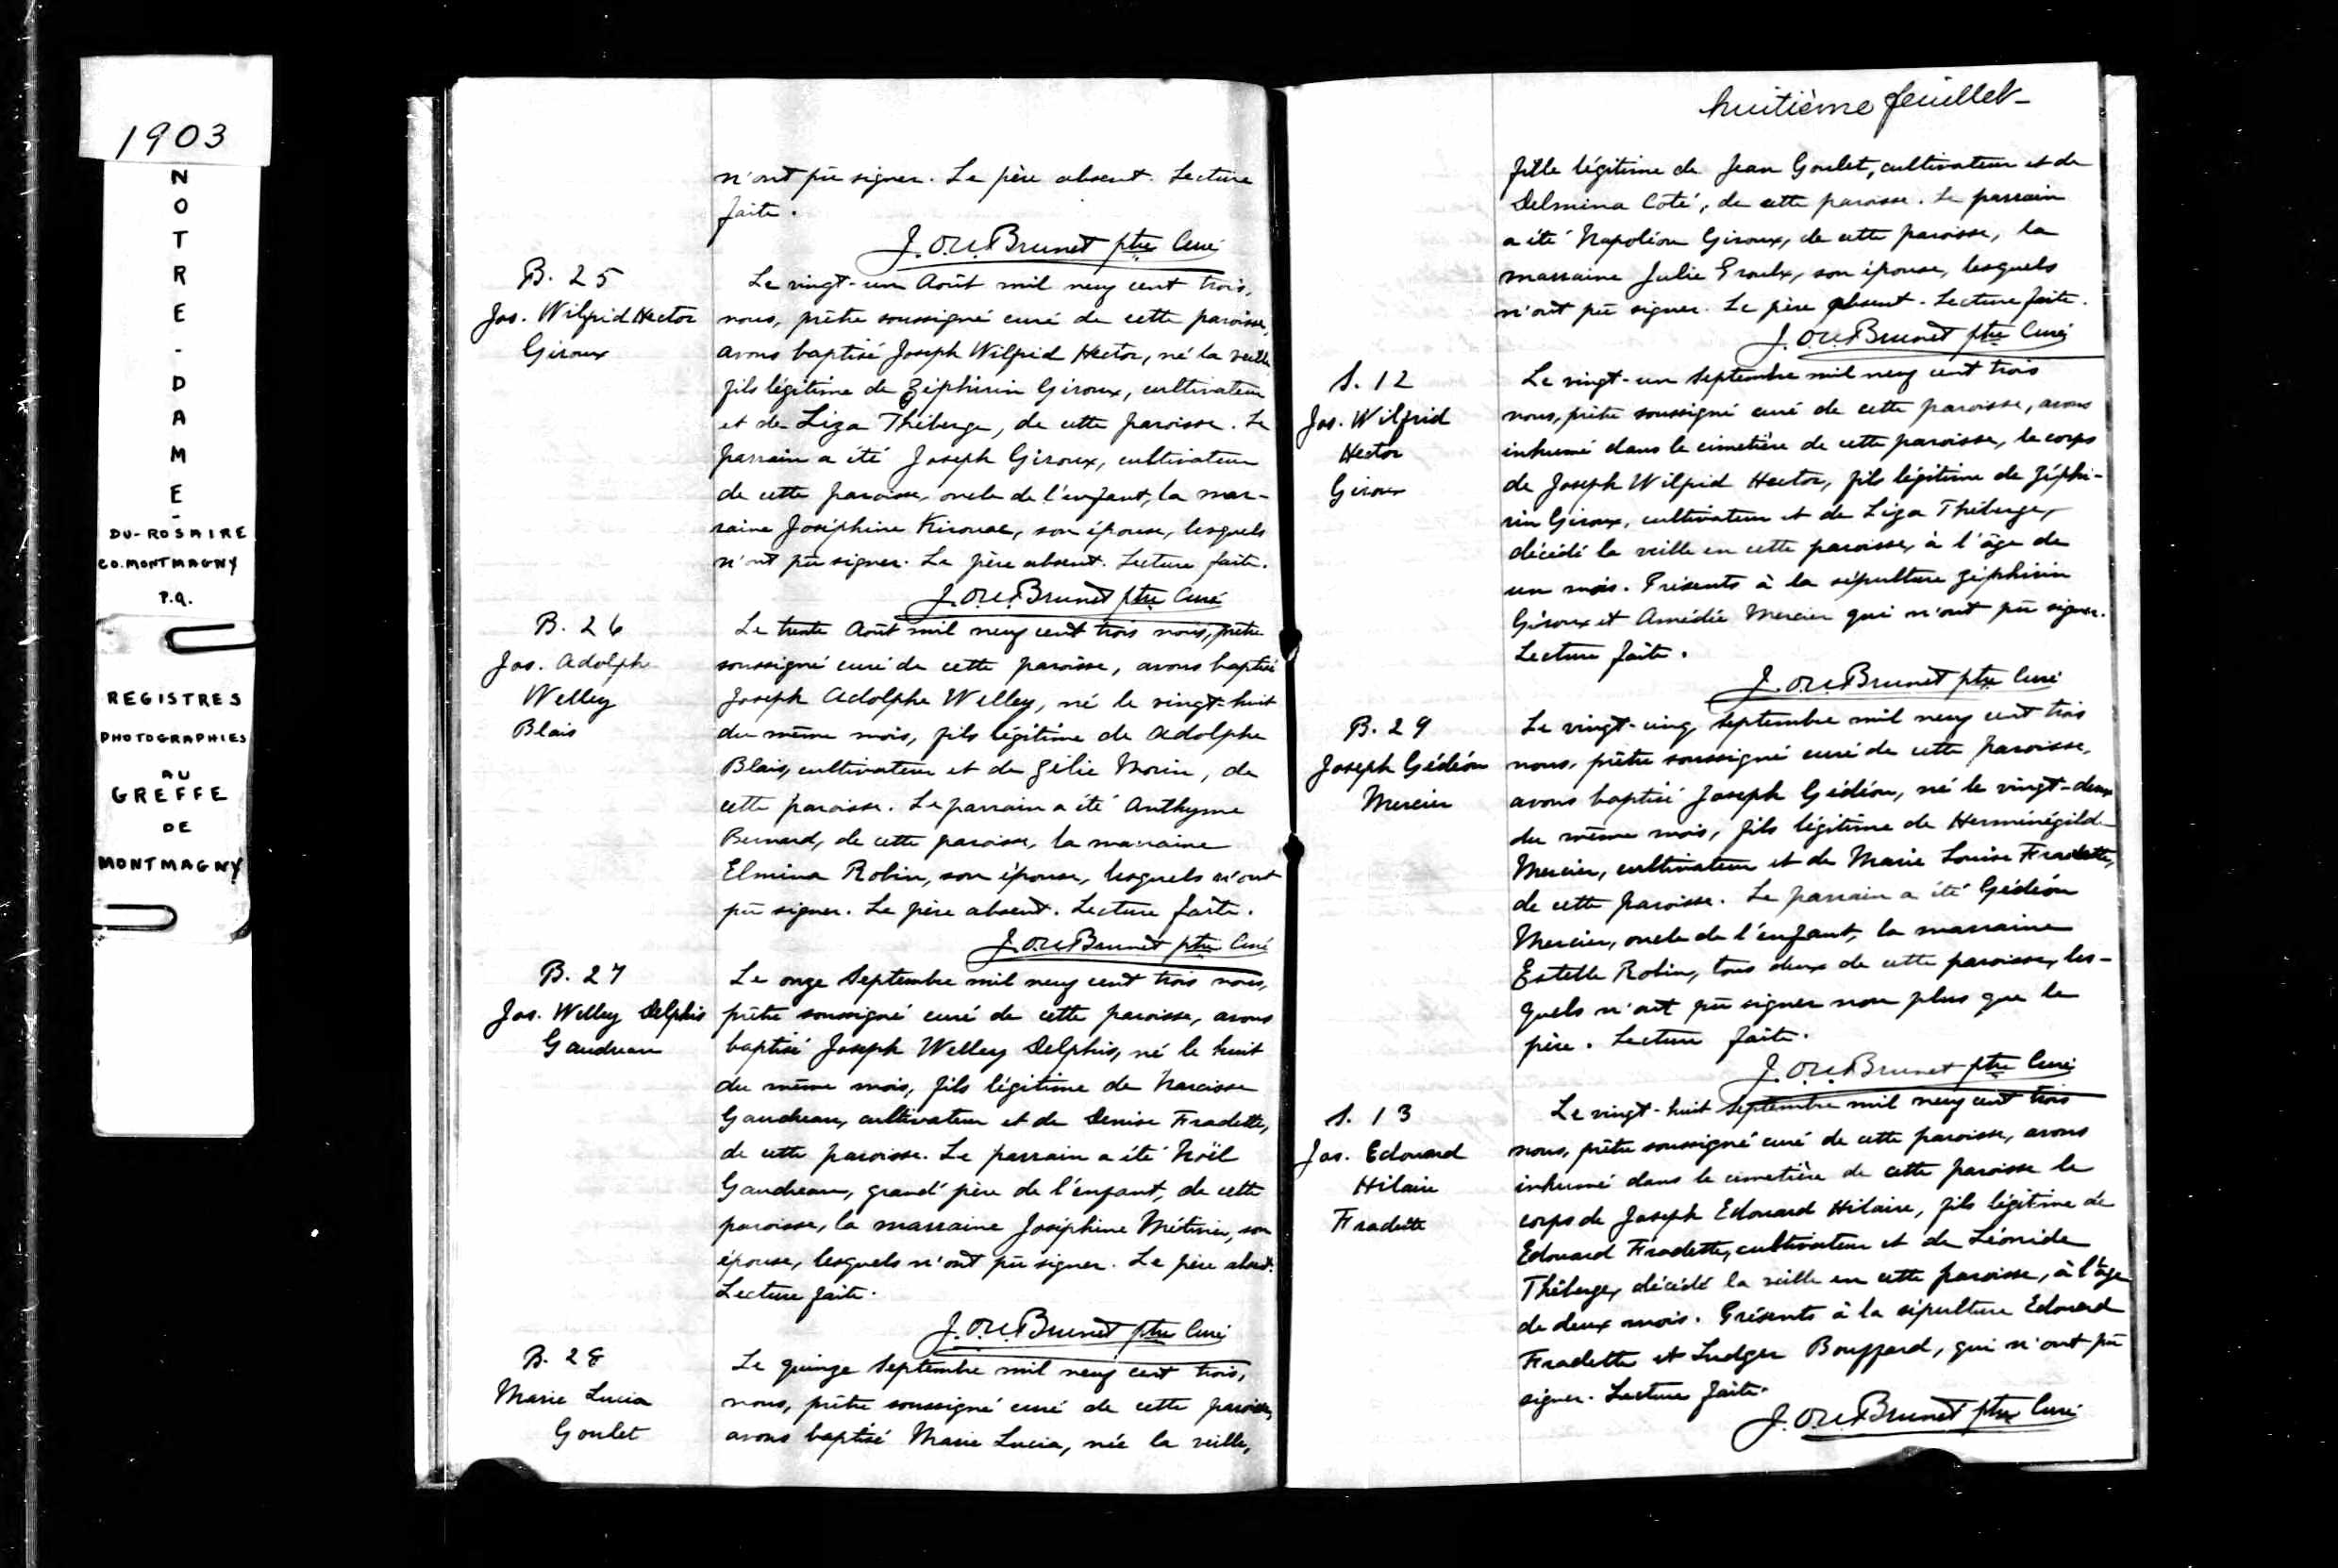 1903
NOTRE-DAME-
DU-ROSAIRE
CO. MONTMAGNY
P.Q.
REGISTRES
PHOTOGRAPHIES
AU
GREFFE
DE
MONTMAGNY
n'ont pu signer. Le père absent. Lecture
faite.
J.O.U. Brunet ptre Curé
B. 25
Jos. Wilfrid Hector
Giroux
Le vingt-un Août mil neuf cent trois,
nous, prêtre soussigné curé de cette paroisse,
avons baptisé Joseph Wilfrid Hector, né la veille
fils légitime de Zéphirin Giroux, cultivateur
et de Liza Théberge, de cette paroisse. Le
parrain a été Joseph Giroux, cultivateur
de cette paroisse, oncle de l'enfant, la mar-
raine Joséphine Kirouac, son épouse, lesquels
n'ont pu signer. Le père absent. Lecture faite.
J.O.U. Brunet ptre Curé
B. 26
Jos. Adolphe
Welley
Blais
Le trente Août mil neuf cent trois nous, prêtre
soussigné curé de cette paroisse, avons baptisé
Joseph Adolphe Welley, né le vingt-huit
du même mois, fils légitime de Adolphe
Blais, cultivateur et de Zélie Morin, de
cette paroisse. Le parrain a été Anthyme
Bernard, de cette paroisse, la marraine
Elmina Robin, son épouse, lesquels n'ont
pu signer. Le père absent. Lecture faite.
J.O.U. Brunet ptre Curé
B. 27
Jos. Welley Delphis
Gaudreau
Le onze Septembre mil neuf cent trois nous,
prêtre soussigné curé de cette paroisse, avons
baptisé Joseph Welley Delphis, né le huit
du même mois, fils légitime de Narcisse
Gaudreau, cultivateur et de Denise Fradette,
de cette paroisse. Le parrain a été Noël
Gaudreau, grand'père de l'enfant, de cette
paroisse, la marraine Joséphine Métivier, son
épouse, lesquels n'ont pu signer. Le père absent.
Lecture faite.
J.O.U. Brunet ptre Curé
B. 28
Marie Lucia
Goulet
Le quinze Septembre mil neuf cent trois,
nous, prêtre soussigné curé de cette paroisse,
avons baptisé Marie Lucia, née la veille,
huitième feuillet
fille légitime de Jean Goulet, cultivateur et de
Delmina Coté, de cette paroisse. Le parrain
a été Napoléon Giroux, de cette paroisse, la
marraine Julie Proulx, son épouse, lesquels
n'ont pu signer. Le père absent. Lecture faite.
J.O.U. Brunet ptre Curé
S. 12
Jos. Wilfrid
Hector
Giroux
Le vingt-un Septembre mil neuf cent trois
nous, prêtre soussigné curé de cette paroisse, avons
inhumé dans le cimetière de cette paroisse, le corps
de Joseph Wilfrid Hector, fils légitime de Zéphi-
rin Giroux, cultivateur et de Liza Théberge,
décédé la veille en cette paroisse, à l'âge de
un mois. Présents à la sépulture Zéphirin
Giroux et Amédée Mercier qui n'ont pu signer.
Lecture faite.
J.O.U. Brunet ptre Curé
B. 29
Joseph Gédéon
Mercier
Le vingt-cinq Septembre mil neuf cent trois
nous, prêtre soussigné curé de cette paroisse,
avons baptisé Joseph Gédéon, né le vingt-deux
du même mois, fils légitime de Herménégilde
Mercier, cultivateur et de Marie Louise Fradette,
de cette paroisse. Le parrain a été Gédéon
Mercier, oncle de l'enfant, la marraine
Estelle Robin, tous deux de cette paroisse, les-
quels n'ont pu signer non plus que le
père. Lecture faite.
J.O.U. Brunet ptre Curé
S. 13
Jos. Edouard
Hilaire
Fradette
Le vingt-huit Septembre mil neuf cent trois
nous, prêtre soussigné curé de cette paroisse, avons
inhumé dans le cimetière de cette paroisse le
corps de Joseph Edouard Hilaire, fils légitime de
Edouard Fradette, cultivateur et de Léonide
Théberge, décédé la veille en cette paroisse, à l'âge
de deux mois. Présents à la sépulture Edouard
Fradette et Ludger Bouffard, qui n'ont pu
signer. Lecture faite.
J.O.U. Brunet ptre Curé